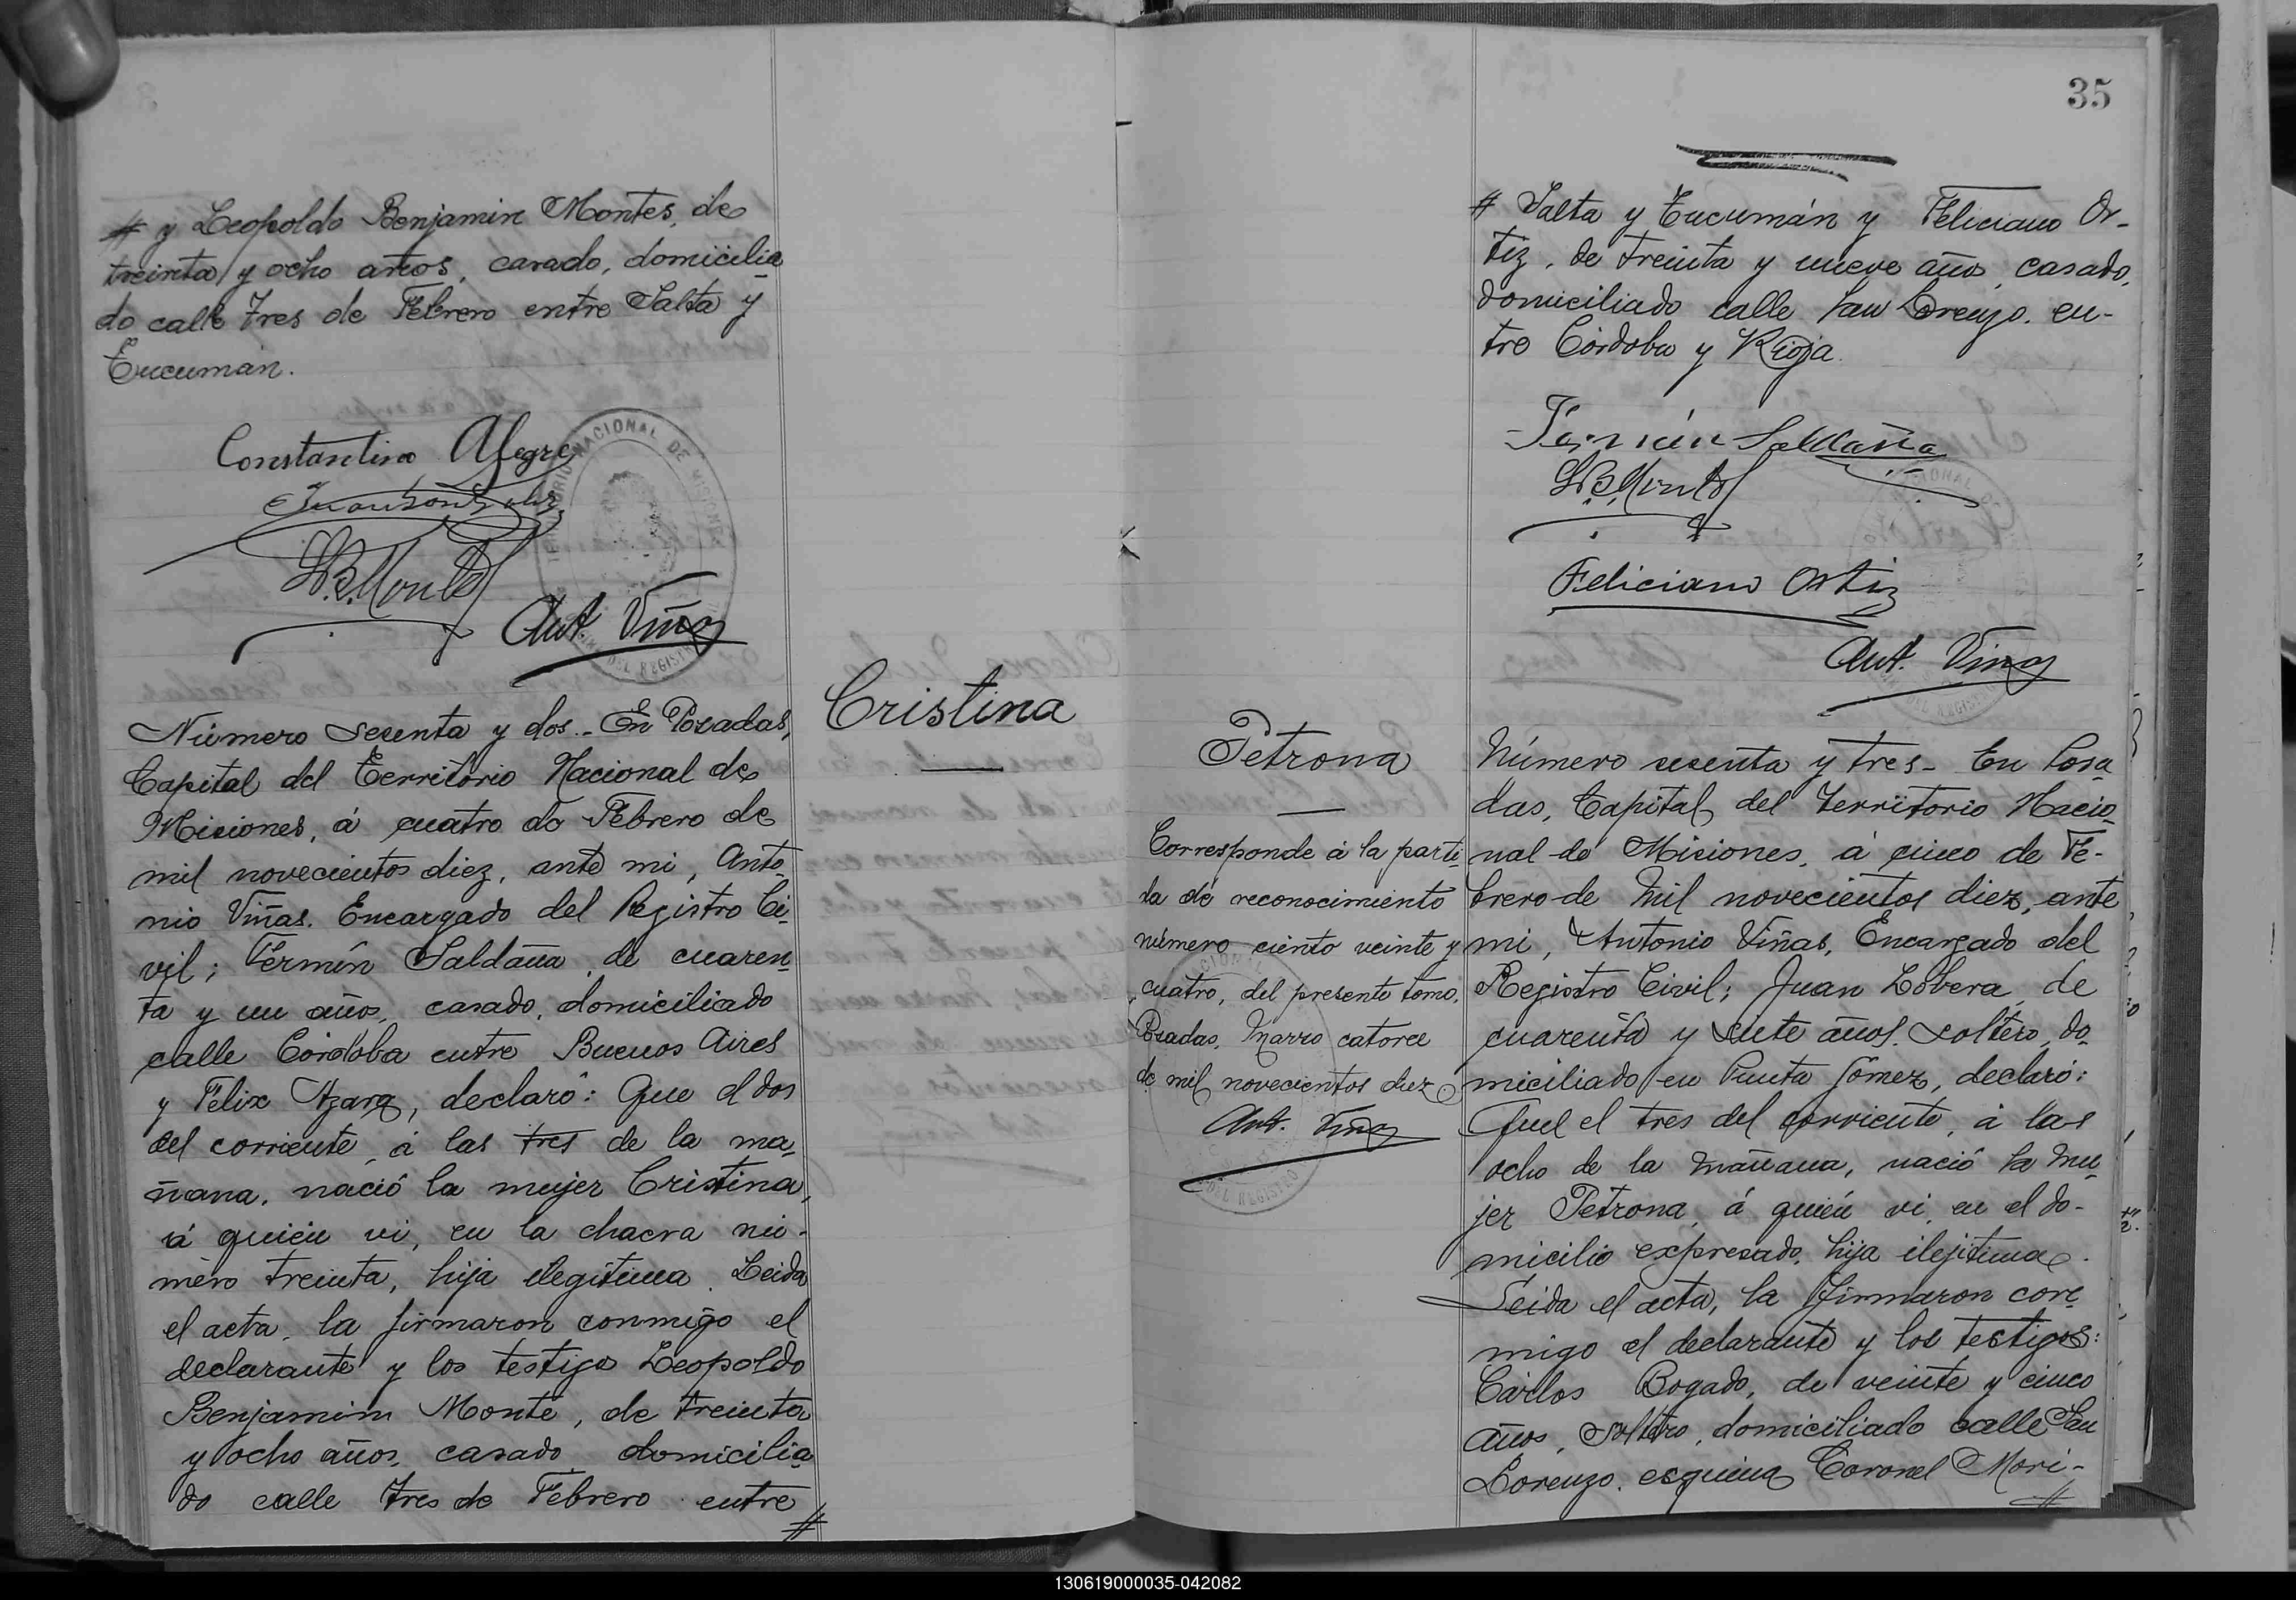 # y Leopoldo Benjamin Montes, de
treinta y ocho años, casado, domicilia
do calle Tres de Febrero entre Salta y
Tucumán.
Constantino Alegre
L.B. Montes
Ant. Viñas
Número sesenta y dos - En Posadas,
Capital del Territorio Nacional de
Misiones, á cuatro de Febrero de
mil novecientos diez, ante mi, Anto
nio Viñas, Encargado del Registro Ci-
vil; Fermín Saldaña, de cuaren
ta y un años, casado, domiciliado
calle Córdoba entre Buenos Aires
y Félix Azara, declaró: Que el dos
del corriente, á las tres de la ma-
ñana, nació la mujer Cristina,
á quién vi, en la chacra nú-
mero treinta, hija ilegítima. Leida
el acta, la firmaron conmigo el
declarante y los testigo Leopoldo
Benjamim Monte, de treinta
y ocho años, casado, domicilia
do calle Tres de Febrero entre
#
Cristina
35
# Salta y Tucumán y Feliciano Or-
tiz, de treinta y nueve años, casado,
domiciliado calle San Lorenzo, en-
tre Córdoba y Rioja.
Fermín Saldaña
L.B. Montes
Feliciano Ortiz
Ant. Viñas
Petrona
Corresponde á la parti
da de reconocimiento
número ciento veinte y
cuatro, del presente tomo,
Posadas, Marzo catorce
de mil novecientos diez
Ant. Viñas
Número sesenta y tres - En Posa
das, Capital del Territorio Nacio
nal de Misiones, á cinco de Fe-
brero de mil novecientos diez, ante
mi, Antonio Viñas, Encargado del
Registro Civil; Juan Lobera, de
cuarenta y siete años, soltero, do-
miciliado en Punta Gómez, declaró:
Quel el tres del corriente, á las
ocho de la mañana, nació la mu-
jer Petrona, á quién vi, en el do-
micilio expresado, hija ilejitima.
Leida el acta, la firmaron con-
migo el declarante y los testigos:
Cárlos Bogado, de veinte y cinco
años, soltero, domiciliado calle San
Lorenzo, esquina Coronel Mori-
#
130619000035-042082